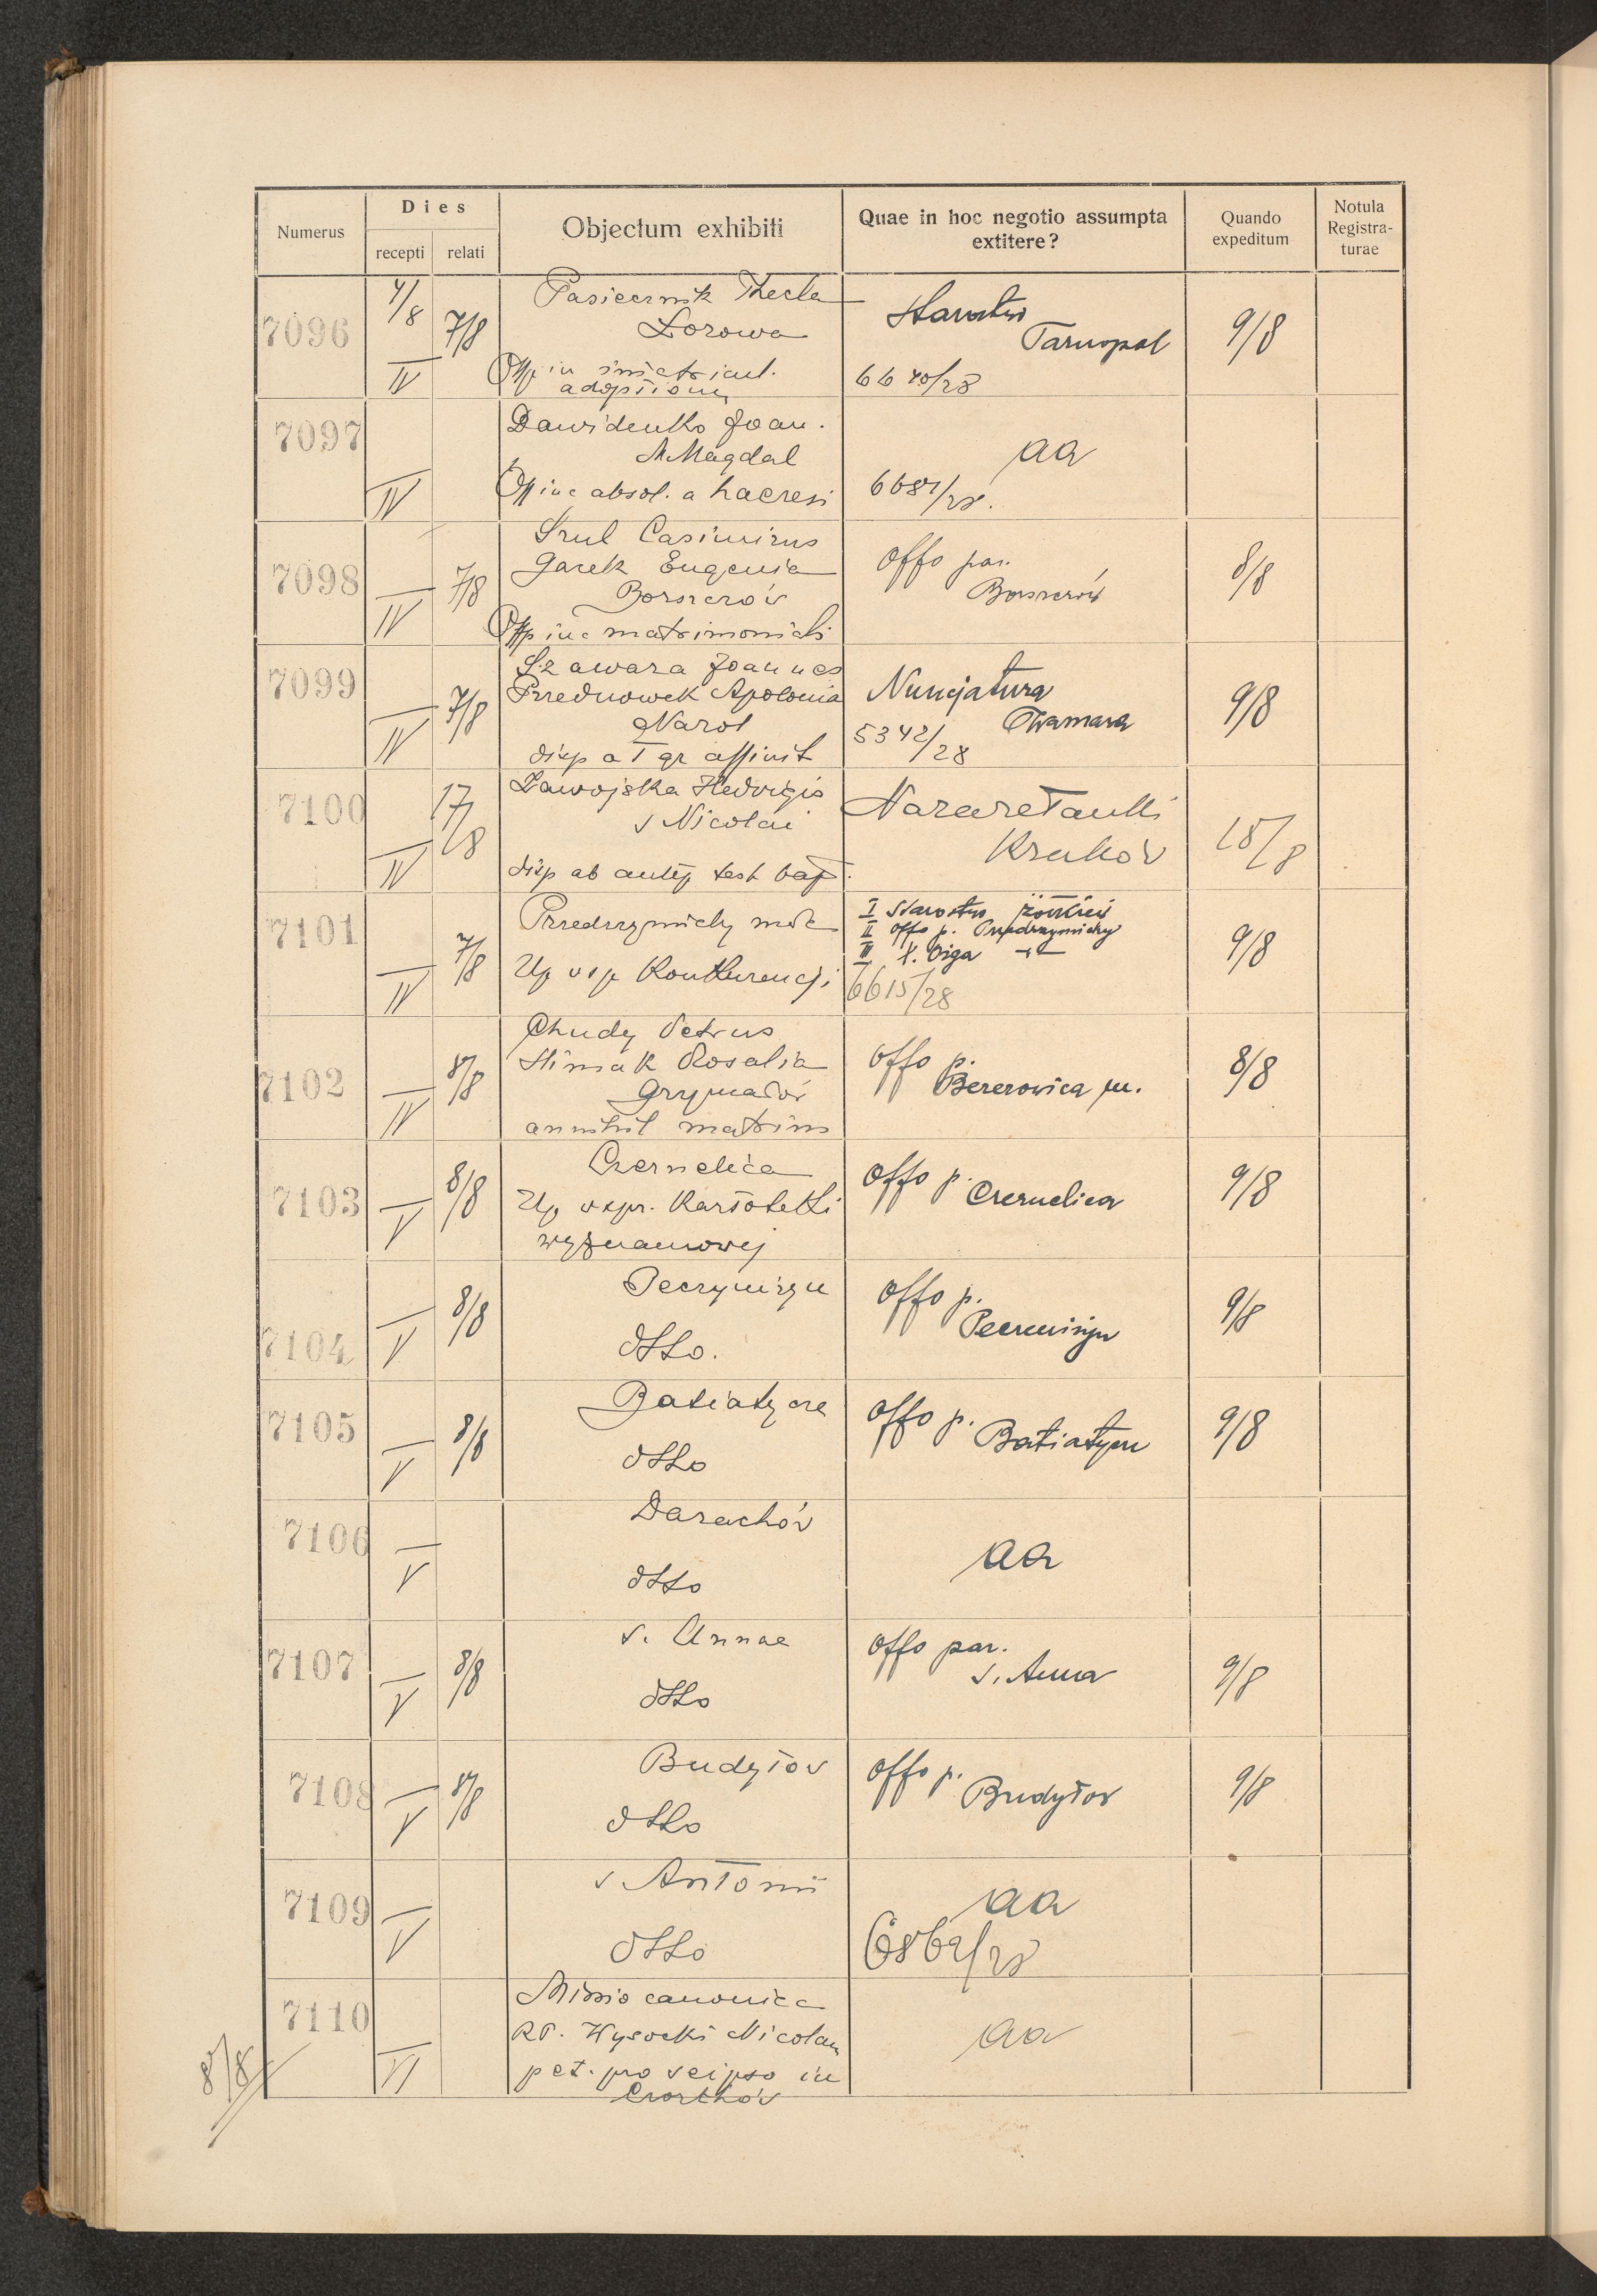 Numerus
Dies
recepti relati
Objectum exhibiti
Quae in hoc negotio assumpta
extitere?
Quando
expeditum
Notula
Registra-
turae
7096
4/8
IV
7/8
Pasiecznik Thecla
Łozowa
in
adoptionum
Starostwo
Tarnopol
6640/28
9/8
7097
IV
Dawidenko Joan.
M. Magdal
absol. a haeresi
aa
6681/28.
7098
IV
7/8
Srul Casimirus
Garek Eugenia
Borszczów
inc matrimoniali
Offo par.
Borszczów
8/8
7099
IV
7/8
Szawara Joannes
Przednowek Apolonia
Narol
disp a I gr affinit
Nuncjatura
5342/28
9/8
7100
IV
17/8
Zawojska Hedvigis
s Nicolai
disp ab test bapt.
Nazaretanki
Kraków
18/8
7101
IV
7/8
Przedrzymichy
Up w sp Konkurencji
I Starostwo Żółkiew
II Offo p. Przedrzymichy
III X.
6615/28
9/8
7102
IV
8/8
Chudy Petrus
Rosalia
Grzymałów
annihil matrim
Offo p.
Berezowica m.
8/8
7103
V
8/8
Czernelica
Up w spr. Kartoteki
wyznaniowej
Offo p. Czernelica
9/8
7104
V
8/8
Peczyniżyn
dtto.
Offo p.
Peczeniżyn
9/8
7105
V
8/8
Batiatycze
dtto
Offo p. Batiatycze
9/8
7106
V
Darachów
dtto
aa
7107
V
8/8
s. Annae
dtto
Offo par.
s. Anna
9/8
7108
V
8/8
Budyłov
dtto
Offo p.
Budyłov
9/8
7109
V
s Antonii
dtto
aa
6862/28
7110
8/8
VI
Missio canonica
RP. Wysocki Nicolaus
pet. pro seipso in
Czortków
aa